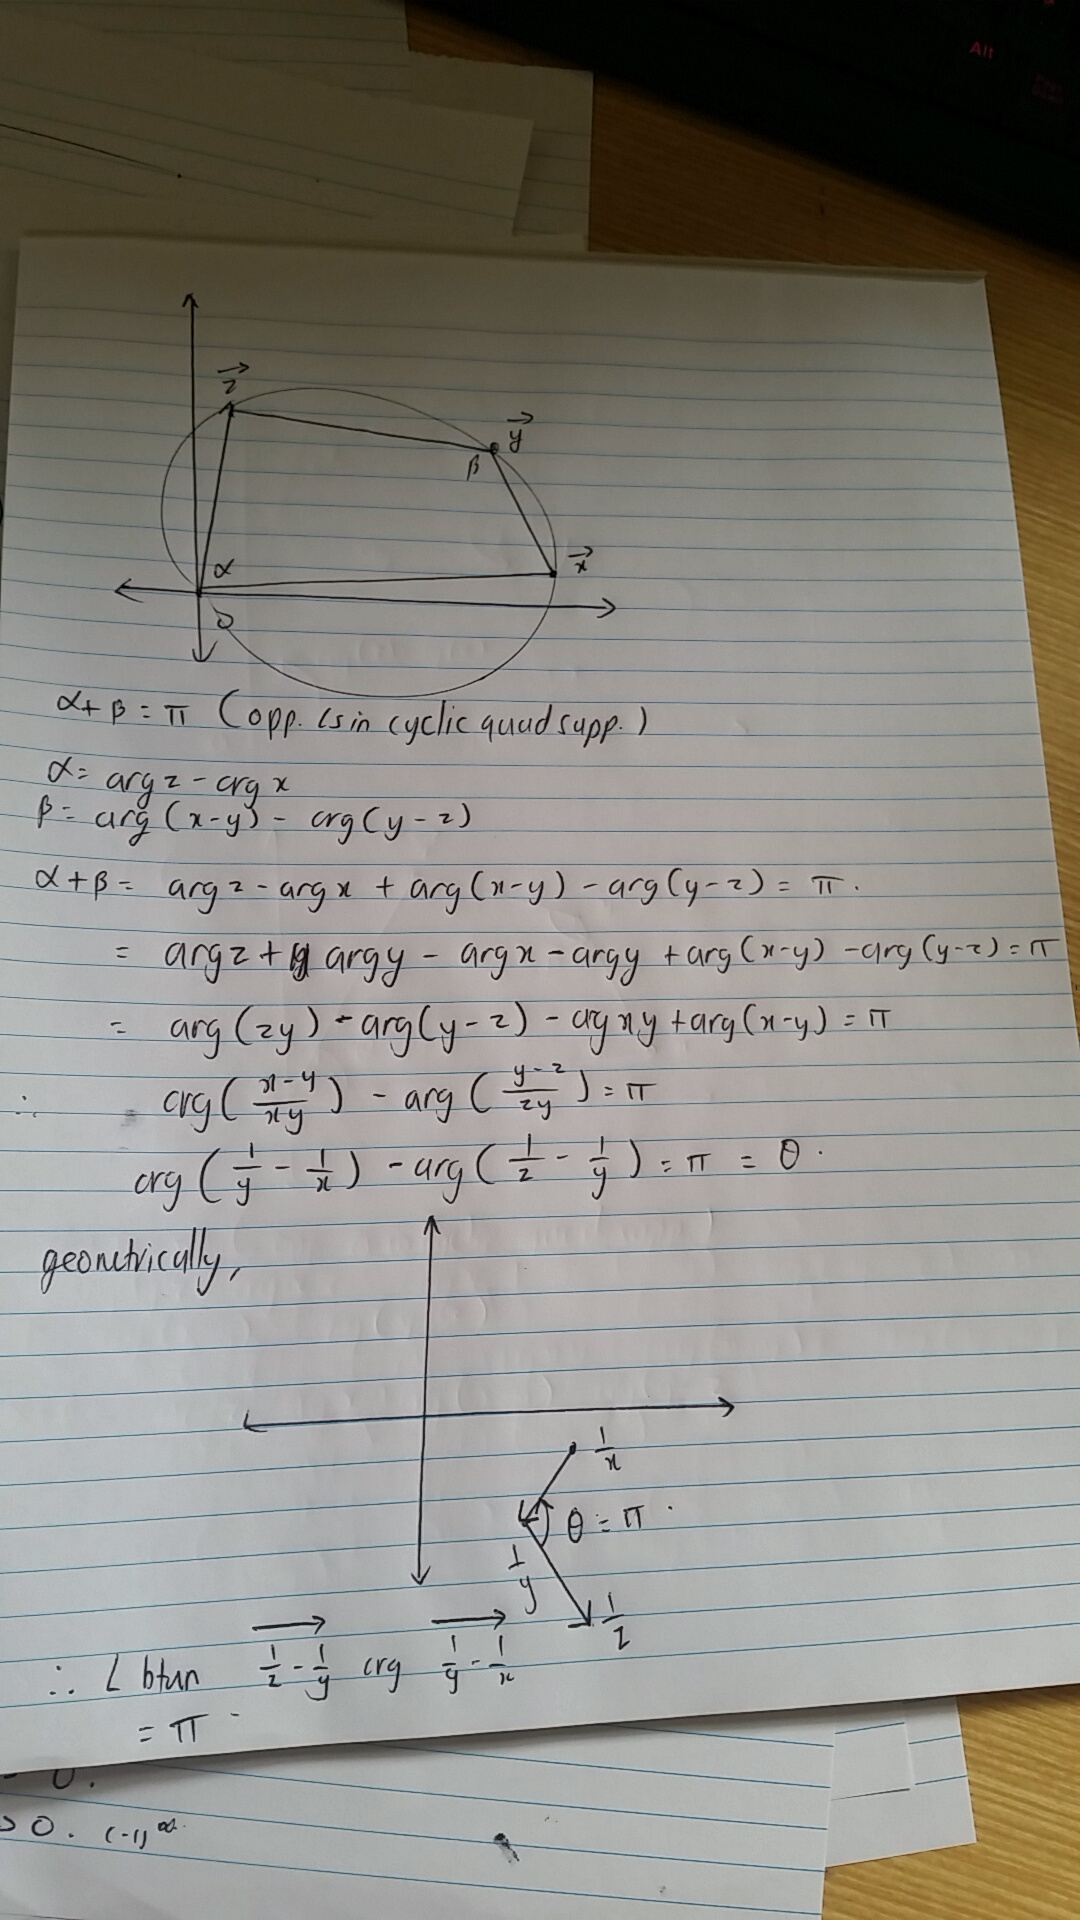 Alt
z
y
β
α
x
O
α+β = π (opp. ∠s in cyclic quad supp.)
α = arg z - arg x
β = arg (x-y) - arg (y-z)
α+β = arg z - arg x + arg (x-y) - arg (y-z) = π.
= arg z + arg y - arg x - arg y + arg (x-y) - arg (y-z) = π
= arg (zy) - arg (y-z) - arg xy + arg (x-y) = π
∴ arg ( x-y / xy ) - arg ( y-z / zy ) = π
arg ( 1/y - 1/x ) - arg ( 1/z - 1/y ) = π = θ.
geometrically,
1/x
θ = π.
1/y
1/z
∴ ∠ btwn 1/z - 1/y arg 1/y - 1/x
= π.
0.
0. (-1)